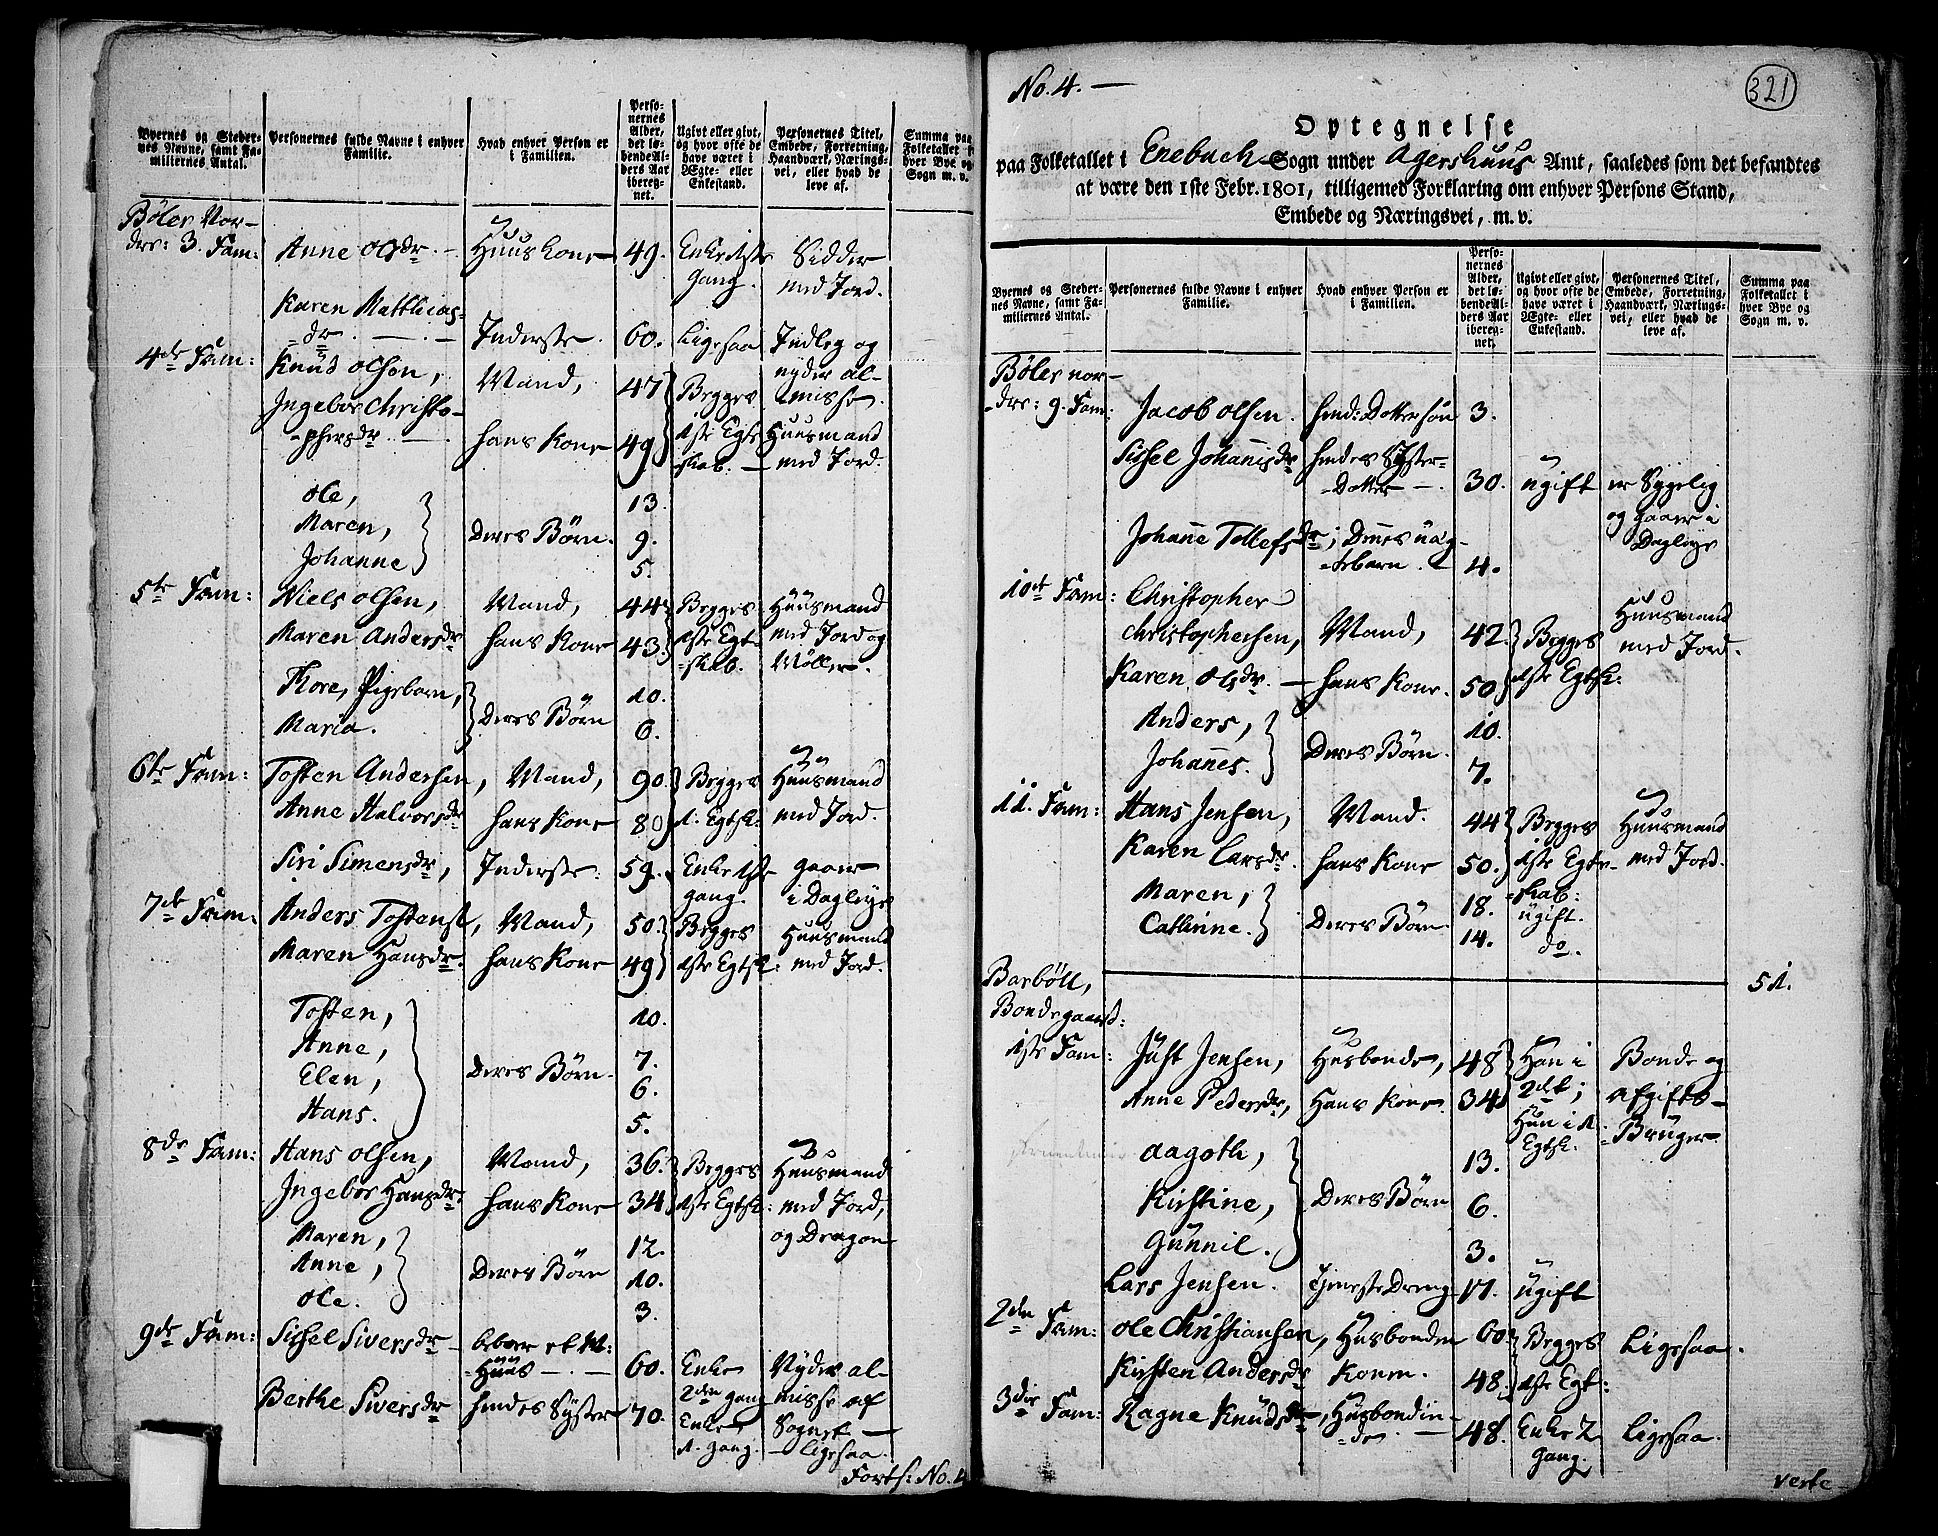 Byernes og Steder-
nes Navne, samt Fa-
miliernes Antal.
Personernes fulde Navne i enhver
Familie.
Hvad enhver Person er
i Familien.
Perso-
nernes
Alder,
det lø-
bende Al-
ders Aar
ibereg-
net.
Ugivt eller givt,
og hvor ofte de
have været i
Ægte- eller
Enkestand.
Personernes Titel,
Embede, Forretning,
Haandværk, Nærings-
vei, eller hvad de
leve af.
Summa paa
Folketallet i
hver Bye og
Sogn m. v.
Böler Nor-
dre: 3. Fam: Anne Olsdr. Huuskone 49. Enke 1ste Sidder
gang. med Jord.
Karen Matthias-
dr. Inderste. 60. Ligesaa Indleg og
nyder al-
misse.
4de Fam: Knud Olsen, Mand, 47 Begges
Ingebor Christo-
phersdr. hans Kone 49 1ste Egte Huusmand
skab. med Jord.
Ole, 13.
Maren, Deres Börn. 9.
Johanne 5.
5te Fam: Niels Olsen, Mand, 44 Begges Huusmand
Maren Andersdr hans Kone 43. 1ste Egt- med Jord og
skab. Möller.
Thore, Pigebarn, 10.
Maria. Deres Börn 6.
6te Fam: Tosten Andersen, Mand, 90. Begges Huusmand
Anne Halvorsdr hans Kone 80 1. Egtsk: med Jord.
Siri Simensdr, Inderste. 59. Enke 1ste gaaer
gang. i Dagleye
7de Fam: Anders Tostens, Mand, 50. Begges Huusmand
Maren Hansdr. hans Kone 49 1ste Egtsk: med Jord.
Tosten, 10.
Anne, 7.
Elen, Deres Börn. 6.
Hans. 5.
8de Fam: Hans Olsen, Mand, 36. Begges Huusmand
Ingebor Hansdr. hans Kone 34 1ste Egtsk: med Jord,
og Dragon
Maren, 12.
Anne, Deres Börn 10.
Ole. 3.
9de Fam: Sissel Siversdr beboer et
Huus 60. Enke Nyder al-
2den gang misse af
Berthe Siversdr hendes Syster 70. Enke, Sognet
1. gang. ligesaa.
Forts: No. 4
No. 4.
321
Optegnelse
paa Folketallet i Eneback Sogn under Agershuus Amt, saaledes som det befandtes
at være den 1ste Febr. 1801, tilligemed Forklaring om enhver Persons Stand,
Embede og Næringsvei, m. v.
Byernes og Steder-
nes Navne, samt Fa-
miliernes Antal.
Personernes fulde Navne i enhver
Familie.
Hvad enhver Person er
i Familien.
Perso-
nernes
Alder,
det lø-
bende Al-
ders Aar
ibereg-
net.
Ugivt eller givt,
og hvor ofte de
have været i
Ægte- eller
Enkestand.
Personernes Titel,
Embede, Forretning,
Haandværk, Nærings-
vei, eller hvad de
leve af.
Summa paa
Folketallet i
hver Bye og
Sogn m. v.
Böler nor-
dre: 9. Fam: Jacob Olsen. hend: Dattersön 3.
Sissel Johannisdr hendes Syster-
Datter 30. ugift er Sygelig
og gaaer i
Dagleye
Johanne Tollefsdr, Dennes uæg-
te barn. 4.
10de Fam: Christopher
Christophersen, Mand, 42. Begges Huusmand
med Jord.
Karen Olsdr. hans Kone. 50 1ste Egtsk:
Anders, 10.
Johannes. Deres Börn. 7.
11. Fam: Hans Jensen, Mand. 44 Begges Huusmand
Karen Larsdr. hans Kone 50. 1ste Egte- med Jord.
skab:
Maren, 18. ugift.
Cathrine. Deres Börn. 14. do.
51.
Barböll,
Bondegaard:
1ste Fam: Just Jensen, Husbonde, 48 Han i Bonde og
Anne Pedersdr, Hans Kone. 34 2det; afgifts-
Hun i 1. Bruger
Egtsk.
Aagoth, 13.
Kirstine, Deres Börn 6.
Gunnil. 3.
Lars Jensen. Tjenestedreng 17. ugift
2den Fam: Ole Christiansen, Husbonden 60. Begges Ligesaa.
Kirsten Andersdr Konen. 48. 1ste Egt:
3die Fam: Ragne Knudsdr, Husbondin-
de. 48. Enke 2 Ligesaa.
gang.
verte